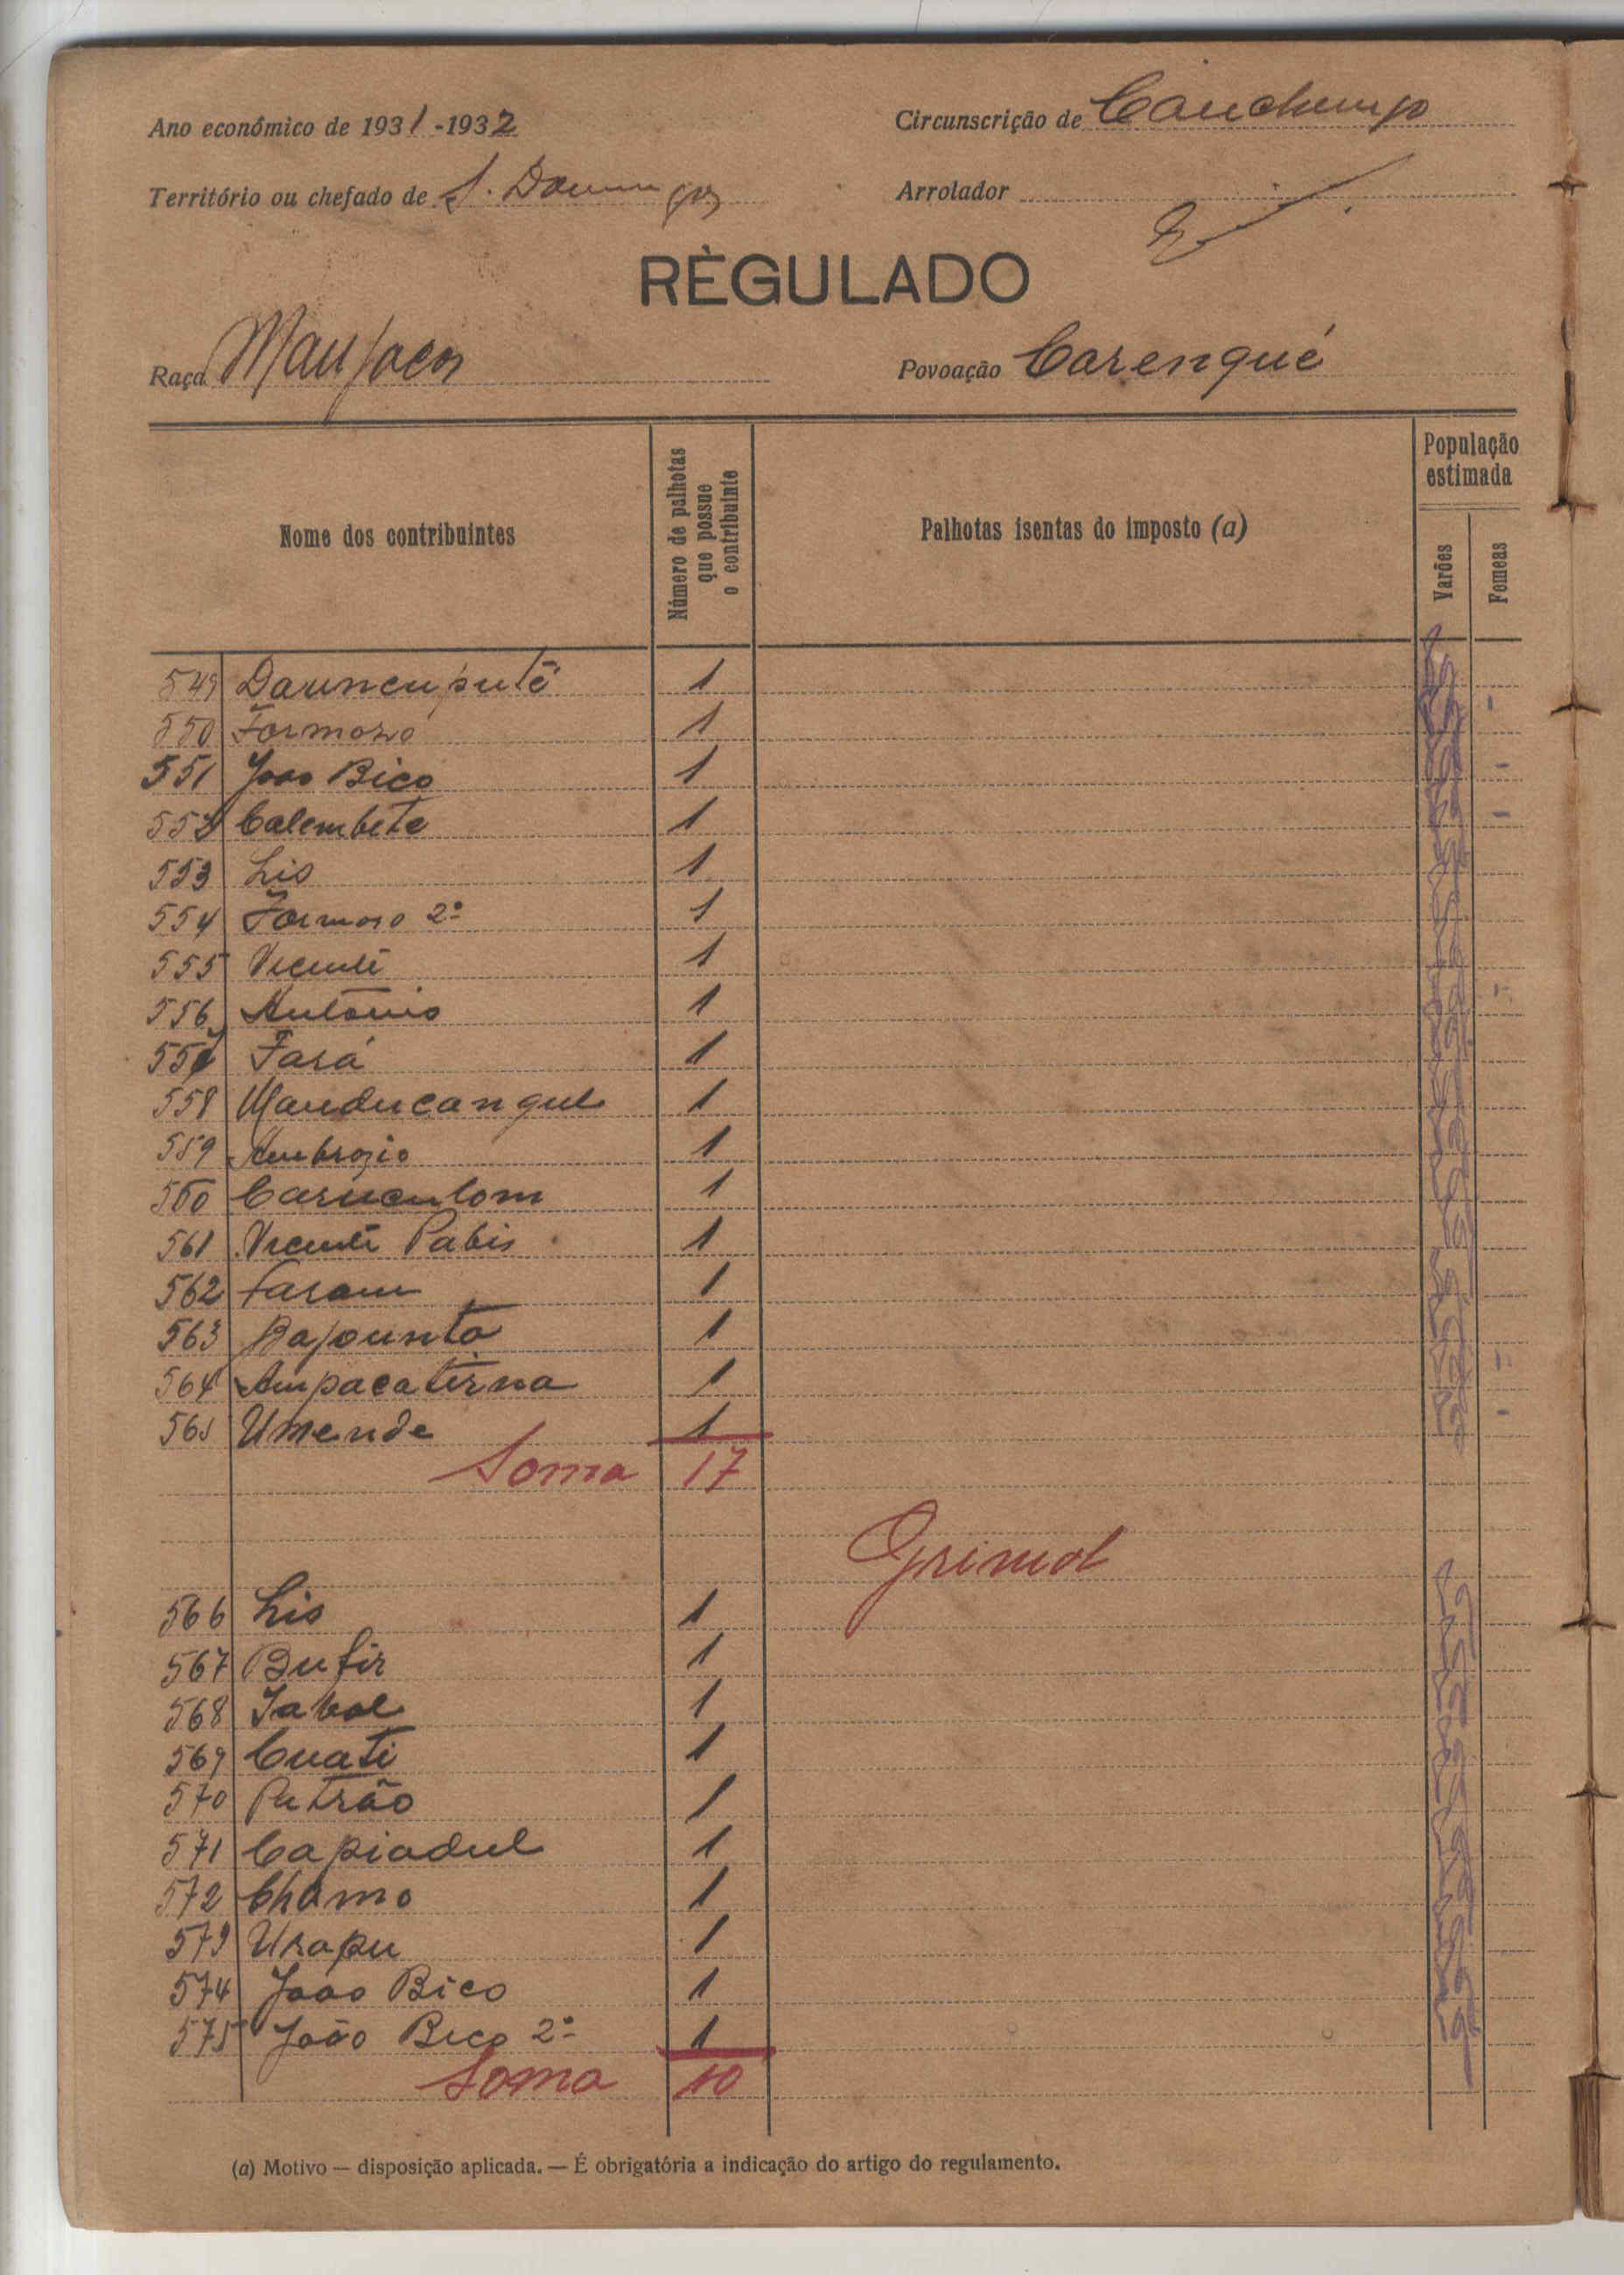 Ano económico de 1931-1932
Circunscrição de Canchungo
Território ou chefado de S. Domingos
Arrolador
RÈGULADO
Raça Manjacos
Povoação Carenqué
Nome dos contribuintes
Número de palhotas que possue o contribuinte
Palhotas isentas do imposto (a)
População estimada
Varões
Femeas
549 1
550 Formozo 1
551 Joao Bico 1
552 Calembete 1
553 Lis 1
554 Formoso 2º 1
555 Vicente 1
556 Antonio 1
557 Fará 1
558 Manducangul 1
559 Ambrozio 1
560 1
561 Vicente Pabis 1
562 Faram 1
563 Bajounta 1
564 Ampacaterna 1
565 Umende 1
Soma 17
Grimol
566 Lis 1
567 Bufir 1
568 1
569 Cuati 1
570 Putrão 1
571 Capiadul 1
572 Chamo 1
573 Urapu 1
574 João Bico 1
575 João Bico 2º 1
Soma 10
(a) Motivo — disposição aplicada. — É obrigatória a indicação do artigo do regulamento.